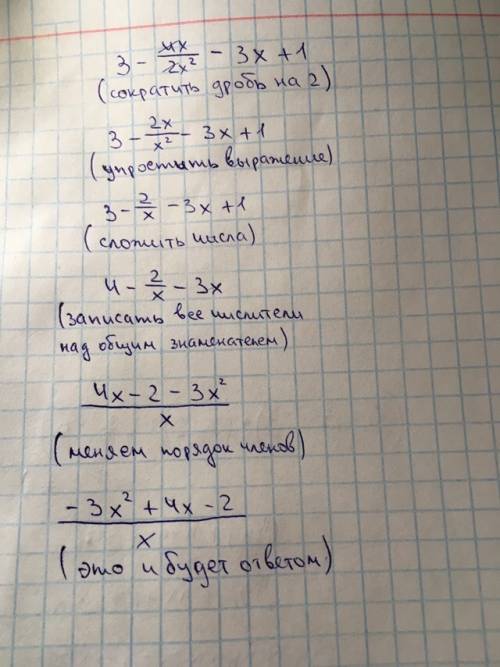 3 - 4x/2x² - 3x + 1
(сократить дробь на 2)
3 - 2x/x² - 3x + 1
(упростить выражение)
3 - 2/x - 3x + 1
(сложить числа)
4 - 2/x - 3x
(записать все числители
над общим знаменателем)
4x - 2 - 3x²/x
(меняем порядок членов)
- 3x² + 4x - 2/x
(это и будет ответом)